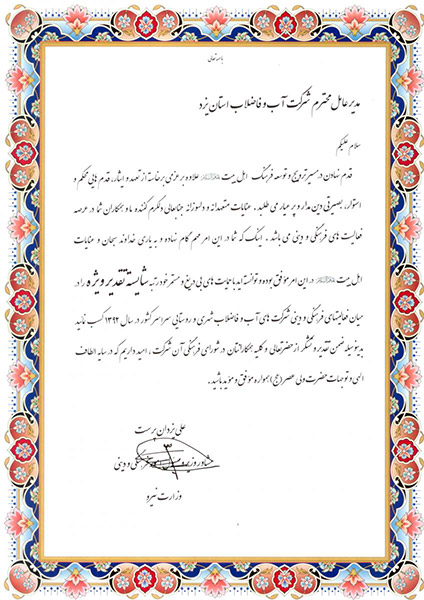 باسمه تعالی
مدیر عامل محترم شرکت آب و فاضلاب استان یزد
سلام علیکم
قدم نهادن در مسیر ترویج و توسعه فرهنگ اهل بیت علاوه بر عزمی برخاسته از تعهد و ایثار، قدم هایی محکم و
استوار، بصیرتی دین مدار و پر عیار می طلبد. عنایات متعهدانه و دلسوزانه جنابعالی دلگرم کننده ما و همکاران شما در عرصه
فعالیت های فرهنگی و دینی می باشد، اینک که شما در این امر مهم گام نهاده و به یاری خداوند سبحان و عنایات
اهل بیت در این امر موفق بوده و توانسته اید با حمایت های بی دریغ و مستمر خود رتبه شایسته تقدیر ویژه را در
میان فعالیتهای فرهنگی و دینی شرکت های آب و فاضلاب شهری و روستایی سراسر کشور در سال ۱۳۹۲ کسب نمائید
بدینوسیله ضمن تقدیر و تشکر از حضرتعالی و کلیه همکارانتان در شورای فرهنگی آن شرکت، امید داریم که در سایه الطاف
الهی و توجهات حضرت ولی عصر (عج) همواره موفق و مؤید باشید.
علی یزدان پرست
مشاور وزیر و فرهنگی و دینی
وزارت نیرو